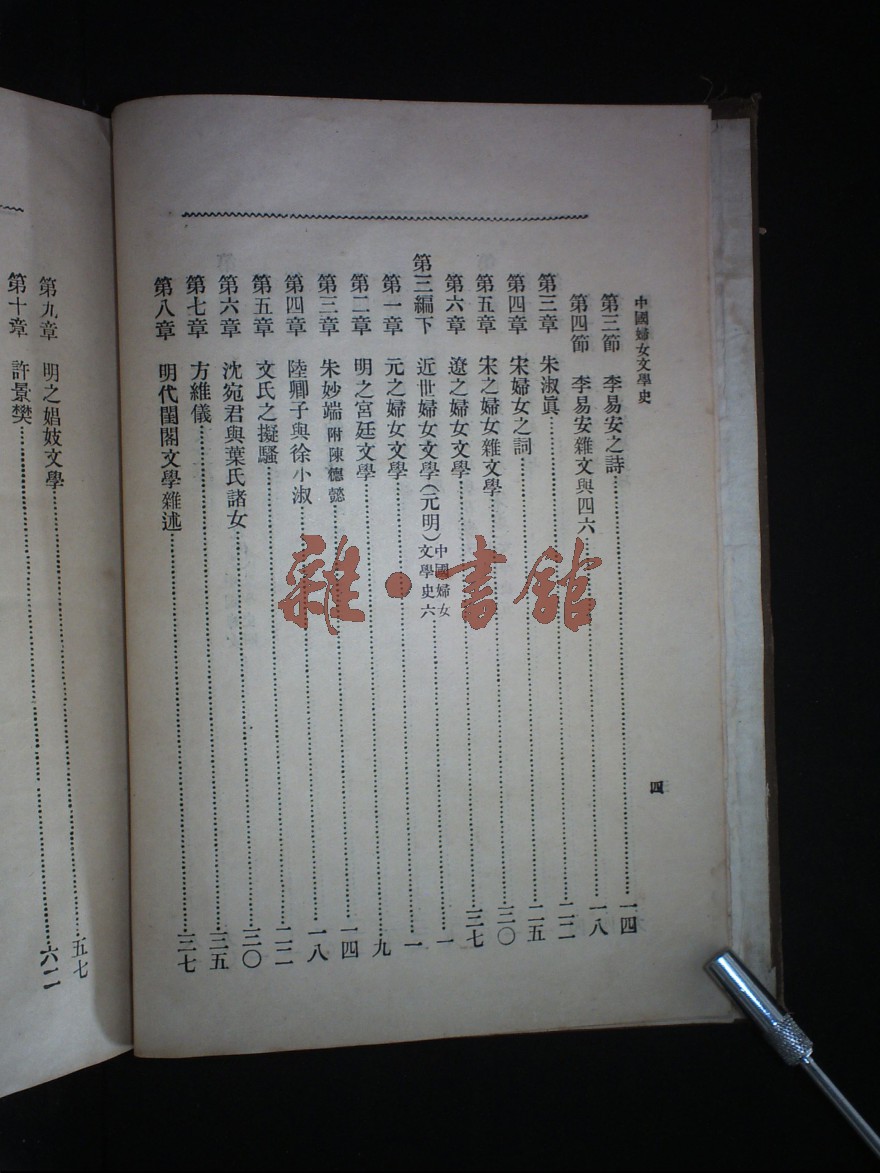 中國婦女文學史
四
第三節 李易安之詩……一四
第四節 李易安雜文與四六……一八
第三章 朱淑眞……二二
第四章 宋婦女之詞……二五
第五章 宋之婦女雜文學……三〇
第六章 遼之婦女文學……三七
第三編下 近世婦女文學(元明)中國婦女文學史六……一
第一章 元之婦女文學……一
第二章 明之宮廷文學……九
第三章 朱妙端附陳德懿……一四
第四章 陸卿子與徐小淑……一八
第五章 文氏之擬騷……二二
第六章 沈宛君與葉氏諸女……三〇
第七章 方維儀……三五
第八章 明代閨閣文學雜述……三七
第九章 明之娼妓文學……五七
第十章 許景樊……六二
雜·書館